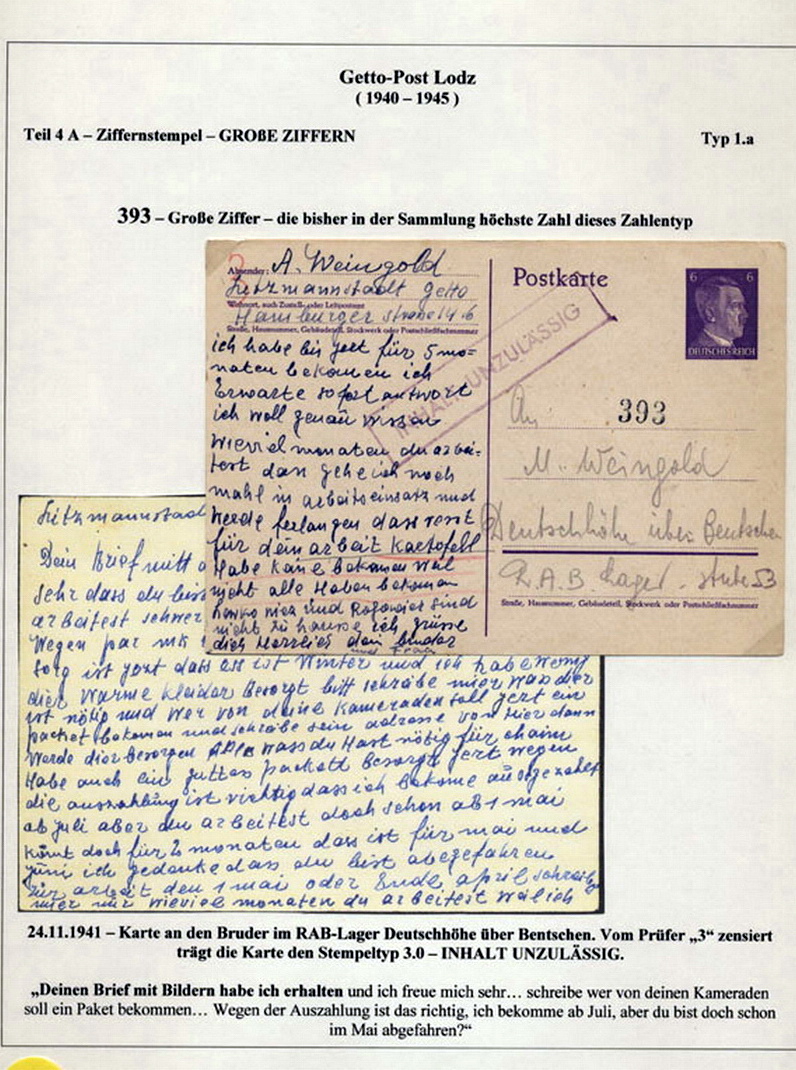 Getto-Post Lodz
( 1940 – 1945 )
Teil 4 A – Ziffernstempel – GROßE ZIFFERN
Typ 1.a
393 – Große Ziffer – die bisher in der Sammlung höchste Zahl dieses Zahlentyp
3
Absender: A. Weingold
Litzmannstadt Getto
Wohnort, auch Zustell- oder Leitpostamt
Hamburger straße 14.6
Straße, Hausnummer, Gebäudeteil, Stockwerk oder Postschließfachnummer
ich habe bis jezt für 5 mo=
naten bekomen ich
Erwarte sofort antwort
ich woll genau wissen
wieviel monaten du arbei-
test dan gehe ich noch
mahl in arbeitseinsatz und
werde ferlangen dass rest
für dein arbeit Kartofell
Habe kaine bekomen weil
nicht alle Haben bekoman
nier und sind
nicht zu hause ich grüsse
dich Herzlich dein bruder
und Frau
Postkarte
6 6
DEUTSCHES REICH
INHALT UNZULÄSSIG
An 393
M. Weingold
Deutschhöhe über Bentschen
R.A.B. Lager. stube 53
Straße, Hausnummer, Gebäudeteil, Stockwerk oder Postschließfachnummer
Litzmannstad
Dein Brief mitt
sehr dass du bist
arbeitest schwer
Wegen par mk
sorg ist jezt dass ess ist Winter und ich habe wenig
dier Warme kleider Besorgt bitt schreibe mier was dier
ist nötig und wer von deine Kameraden soll jezt ein
packet bekoman und schreibe sein adresse von Hier dann
Werde dier Besorgen was du Hast nötig für chaim
Habe auch ein guttes packett Besorgt jezt wegen
die auszahlung ist richtig dass ich bekome ausgezahlt
ab juli aber du arbeitest doch schon ab 1 mai
kömt doch für 2 monaten dass ist für mai und
juni ich gedanke dass du bist abegefahren
zür arbeit den 1 mai oder Ende april schreib
mier nur wieviel monaten du arbeitest weil ich
24.11.1941 – Karte an den Bruder im RAB-Lager Deutschhöhe über Bentschen. Vom Prüfer „3“ zensiert
trägt die Karte den Stempeltyp 3.0 – INHALT UNZULÄSSIG.
„Deinen Brief mit Bildern habe ich erhalten und ich freue mich sehr… schreibe wer von deinen Kameraden
soll ein Paket bekommen… Wegen der Auszahlung ist das richtig, ich bekomme ab Juli, aber du bist doch schon
im Mai abgefahren?“